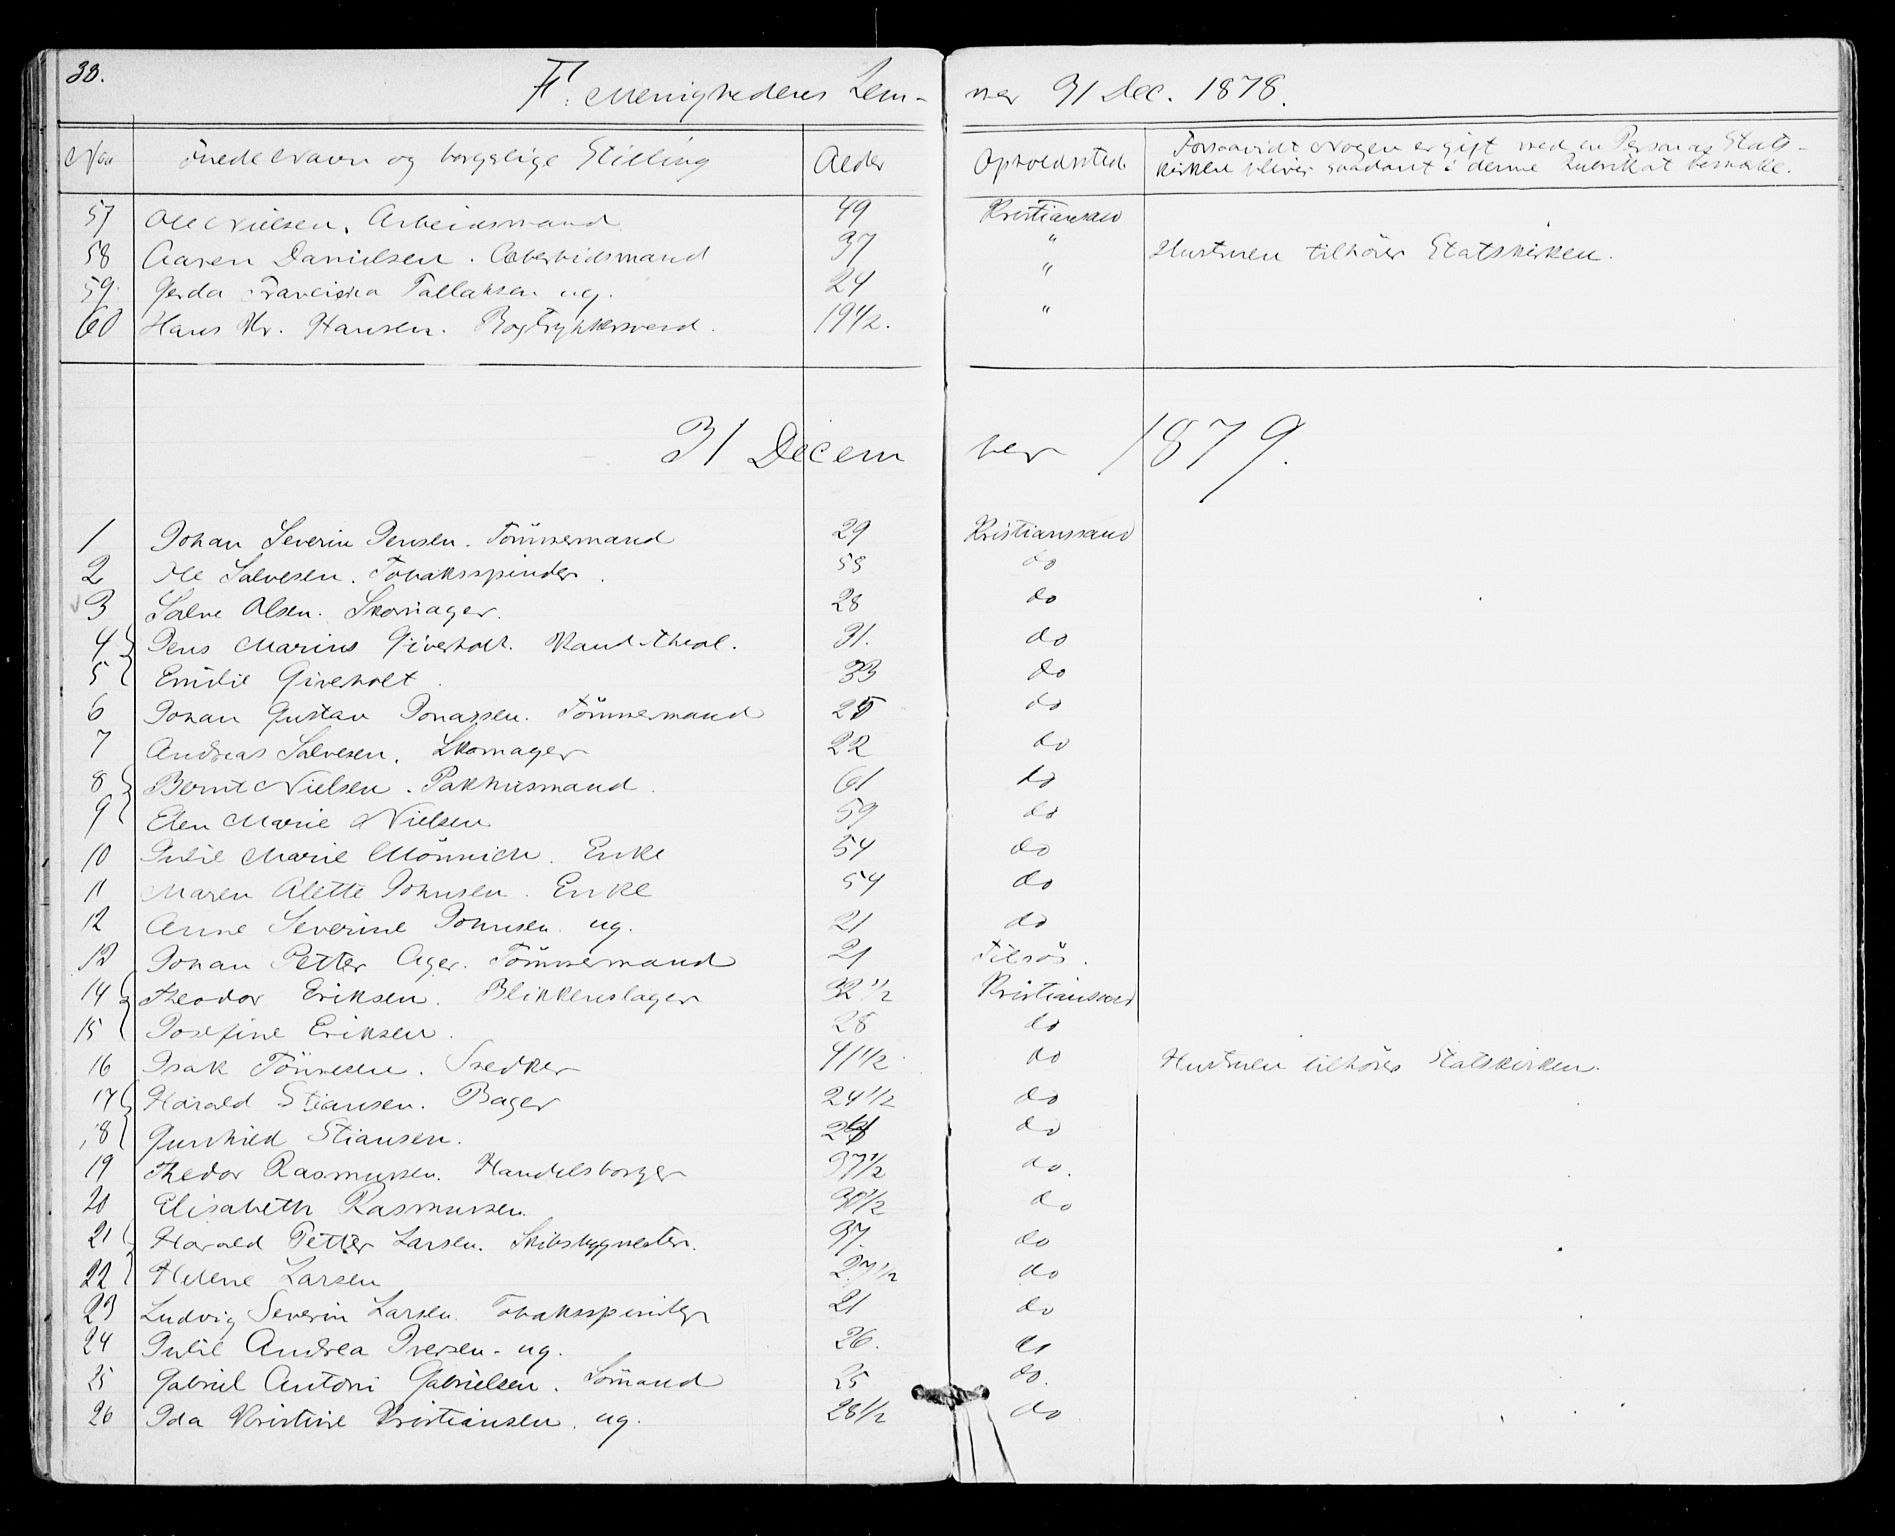 38.
F. Menighedens Lem- mer 31 Dec. 1878.
Nrr Fulde Navn og borgelige Stilling Alder Opholdssted Forsaavidt Nogen er gift med en Person af Stats-
kirken bliver saadant i denne Rubrik at bemærke.
57 Ole Nielsen. Arbeidsmand 49 Kristiansand
58 Aaren Danielsen. Arbeidsmand 37 " Hustruen tilhörer Statskirken.
59. Gerda Franciska Tallaksen ug. 24 "
60 Hans Kr. Hansen. Bogtrykkersvend. 19 1/2. "
31 Decem ber 1879.
1 Johan Severin Jensen. Tömmermand 29 Kristianssand
2 Ole Salvesen. Tobaksspinder. 58 do
3 Salve Olsen. Skomager. 28 do
4 Jens Marius Giverholt. Kand. theol. 31. do
5 Emilie Giverholt. 33 do
6 Johan Gustav Jonassen. Tömmermand 25 do
7 Andreas Salvesen. Skomager 22 do
8 Bernt Nielsen. Pakhusmand. 61 do
9 Elen Marie Nielsen 59 do
10 Julie Marie Mönnich. Enke 54 do
11 Maren Alette Johnsen. Enke 54 do
12 Anne Severine Johnsen ug. 21 do
13 Johan Petter Ager. Tömmermand 21
14 Theodor Eriksen. Blikkenslager 32 1/2 Kristiansand
15 Josefine Eriksen. 28 do
16 Isak Tönnesen. Snedker 41 1/2 do Hustruen tilhörer Statskirken.
17 Harald Stiansen. Bager 24 1/2 do
18 Gunhild Stiansen. do
19 Thedor Rasmussen. Handelsborger 37 1/2 do.
20 Elisabeth Rasmussen. 30 1/2 do
21 Harald Petter Larsen. Skibsbygmester. 37. do
22 Helene Larsen 27 1/2 do
23 Ludvig Severin Larsen. Tobaksspinder 21 do
24 Julie Andrea Iversen. ug. 26. do
25 Gabriel Antoni Gabrielsen. Sömand 25 do.
26 Ida Kristine Kristiansen. ug. 28 1/2 do